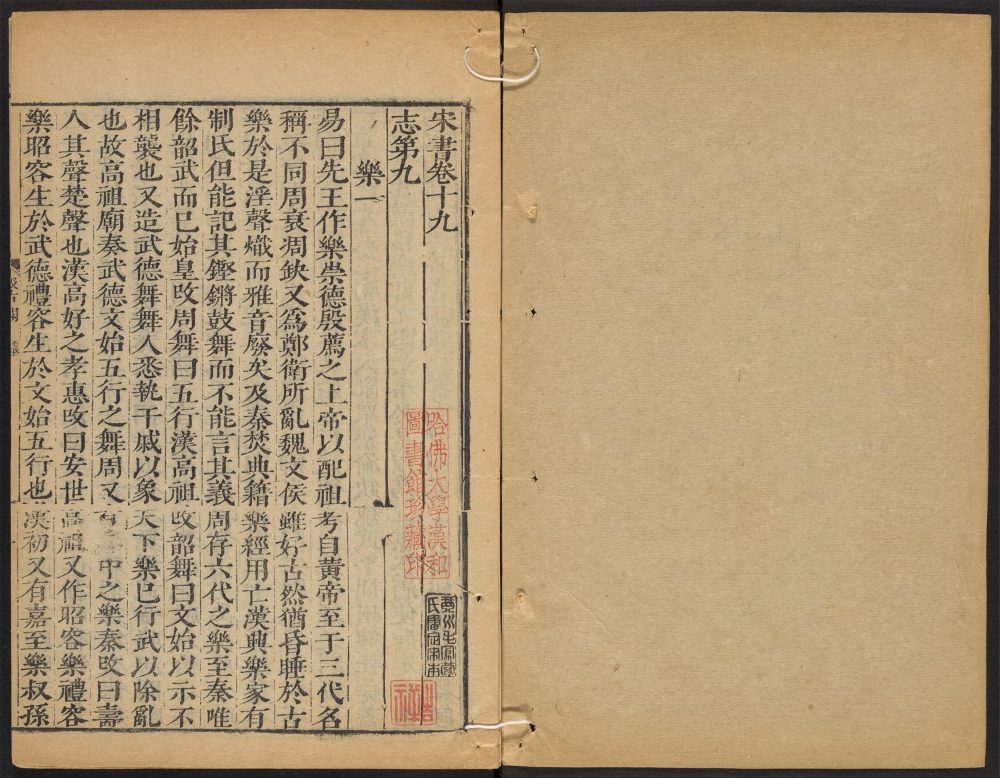 宋書卷十九
志第九
樂一
易曰先王作樂崇德殷薦之上帝以配祖考自黃帝至于三代名
稱不同周衰凋缺又爲鄭衛所亂魏文侯雖好古然猶昏睡於古
樂於是淫聲熾而雅音廢矣及秦焚典籍樂經用亡漢興樂家有
制氏但能記其鏗鏘鼓舞而不能言其義周存六代之樂至秦唯
餘韶武而已始皇改周舞曰五行漢高祖改韶舞曰文始以示不
相襲也又造武德舞舞人悉執干戚以象天下樂已行武以除亂
也故高祖廟奏武德文始五行之舞周又有房中之樂秦改曰壽
人其聲楚聲也漢高好之孝惠改曰安世高祖又作昭容樂禮容
樂昭容生於武德禮容生於文始五行也漢初又有嘉至樂叔孫
哈佛大學漢和
圖書館珍藏印